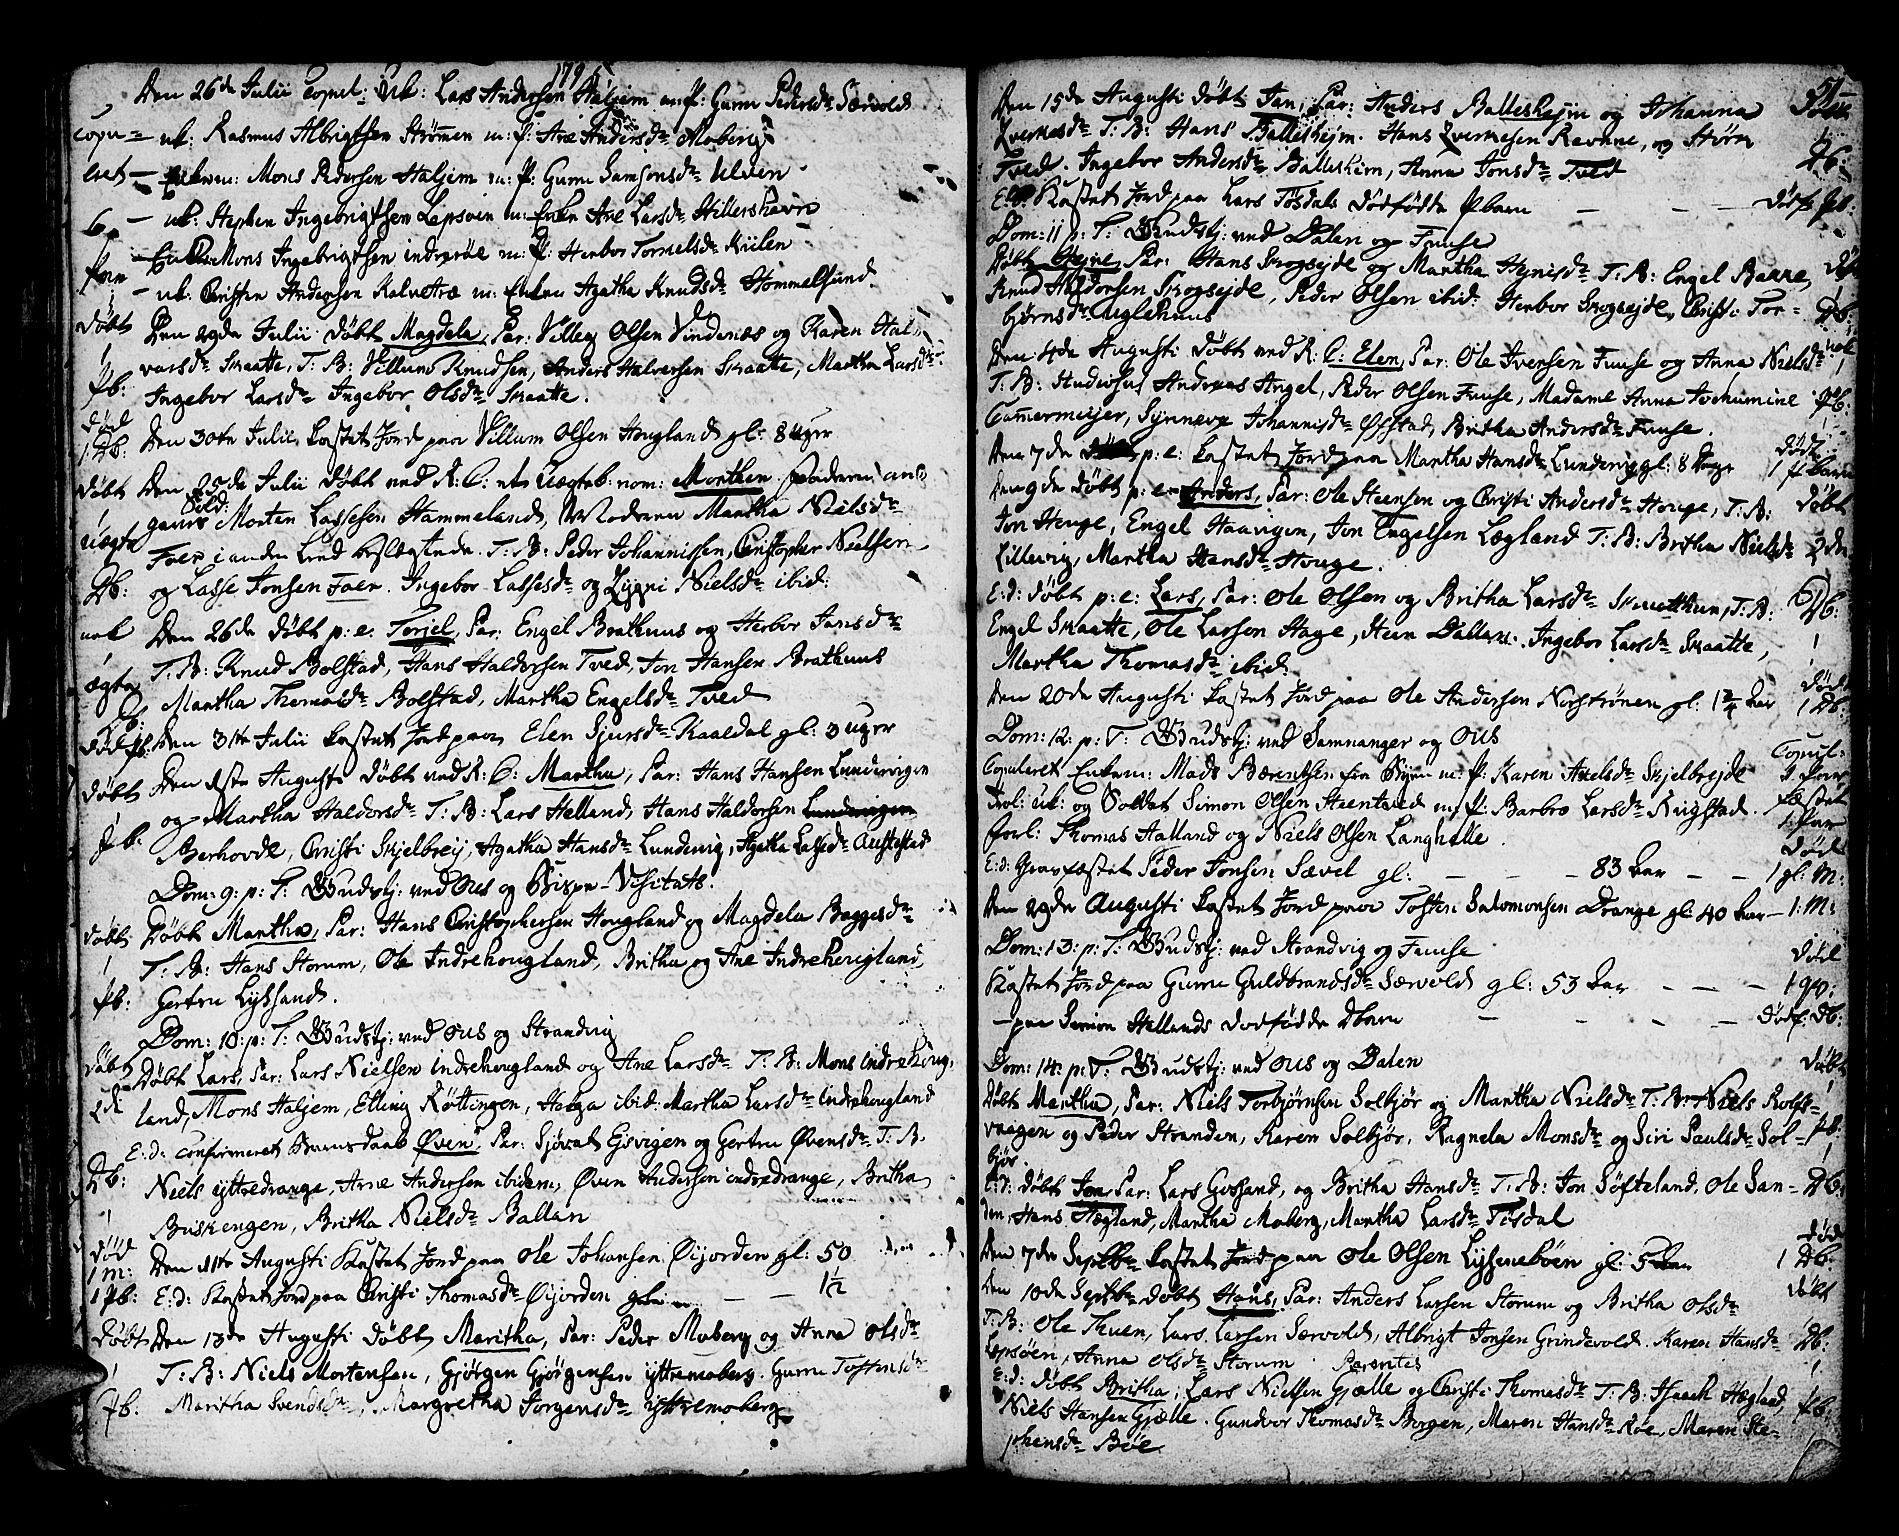 1795
Den 26de Julii Copul: Uk: Lars Andersen Haljem m: P: Gurru Pedersdr Særvold
Copu= — uk: Rasmus Albrigtsen Strømen m: P: Ane Andersdr Moberg
leret — Enkem: Mons Pedersen Haljem m: P: Gurru Samsonsdr Ulven
6 — uk: Stephen Ingebrigtsen Lepsøen m: Enke Ane Larsdr Hillershavn
Par — Enkem: Mons Ingebrigtsen indreröe m: P: Herbor Tormelsdr Kiilen
— uk: Christen Andersen Kalvetræ m: Enke Agatha Knudsdr Hommelsund.
Döbt Den 29de Julii döbt Magdela, Par: Villeg Olsen Vindenæs og Karen Hal=
1 varsdr Skaatte, T: B: Villum Knudsen, Anders Halversen Skaatte, Martha Larsdr
Pb: Ingebor Larsdr Ingebor Olsdr Skaatte.
död
1 Db: Den 30te Julii kastet Jord paa Villum Olsen Hougland gl: 8 uger
döbt Den 25de Julii döbt ved K: C: et uægteb: nom: Morthen. Faderen an=
1 given Morten Lassesen Hammeland, Moderen Martha Nielsdr
uægte Foer i anden Led beslægtede. T: B: Peder Johannissen, Christopher Nielsen
Db: og Lasse Jonsen Foer. Ingebor Lassesdr og Lyssi Nielsdr ibid:
Den 26de döbt p: e: Torjel, Par: Engel Brathuus og Herbor Jansdr
ægte T: B: Knud Bolstad, Hans Haldorsen Tved, Jon Hansen Brathuus
Db: Martha Thomasdr Bolstad, Martha Engelsdr Tved
död Pb: Den 31te Julii kastet Jord paa Elen Sjursdr Kaaldal gl: 3 uger
döbt Den 1ste Augusti döbt ved K: C: Martha, Par: Hans Hansen Lundervigen
og Martha Haldorsdr T: B: Lars Helland, Hans Haldorsen
Pb: Berhovde, Christi Skjelbrej, Agatha Hansdr Lundervig, Agatha Lassedr Austestad
Dom: 9: p: T: Gudstj: ved Ous og Bispe-Visitats.
döbt Döbt Martha, Par: Hans Christophersen Hougland og Magdela Baggesdr
1 T: B: Hans Storum, Ole Indrehougland, Britha og Ane Indrehougland,
Pb: Gertru Lyssand.
Dom: 10: p: T: Gudstj: ved Ous og Strandvig
Döbt Döbt Lars, Par: Lars Nielsen indrehougland og Ane Larsdr T: B: Mons indrehoug=
2de land, Mons Haljem, Elling Röttingen, Helga ibid: Martha Larsdr indrehougland
E: d: confirmeret Barnedaab Øven, Par: Sjovat Gjsvigen og Gertru Øvensdr T: B:
Db: Niels yttredrange, Arne Andersen ibidem, Øven Andersen indredrange, Britha
Buskengen, Britha Nielsdr Ballan
död
1 m: Den 11te Augusti kastet Jord paa Ole Johansen Øijorden gl: 50
1 Pb: E: d: kastet Jord paa Christi Thomasdr Øijorden — — 1½
Döbt Den 13de Augusti döbt Maritha, Par: Peder Moberg og Anna Olsdr
1 T: B: Niels Mortensen, Gjörgen Gjörgensen yttremoberg. Gurru Tostensdr
Pb: Maritha Svendsdr, Margretha Jorgensdr yttremoberg
51
Den 15de Augusti döbt Jan, Par: Anders Ballesheim og Johanna
Qvernesdr T: B: Hans Ballesheim. Hans Qvernesen Revnne, og Störk
Tved. Ingebor Andersdr Ballesheim, Anna Jonsdr Tved Db:
E: d: kastet Jord paa Lars Tösdals dödfödde Pbarn — — — dödf: Pb:
Dom: 11 p: T: Gudstj: ved Dalen og Fuuse
Döbt Hejne, Par: Hans Skogsejde og Martha Hejnisdr T: B: Engel Bakke, döbt
Knud Haldorsen Skogsejde, Peder Olsen ibid: Herbor Skogsejde, Christi Tor= Db:
björnsdr Uglehuus
Den 4de Augusti döbt ved K: C: Elen, Par: Ole Iversen Fuuse og Anna Nielsdr
T: B: Andreas Angel, Peder Olsen Fuuse, Madame Anna Jochumine Pb:
Camermeijer, Synneve Johannisdr Ofstad, Britha Andersdr Fuuse.
Den 7de p: e: kastet Jord paa Martha Hansdr Lundervig gl: 8 Dage död 1 Pbarn
Den 9de döbt p: e: Anders, Par: Ole Steensen og Christi Andersdr Houge, T: B: döbt
Jon Houge, Engel Haavigen, Jon Engelsen Lægland T: B: Britha Nielsdr 2de
Lillevig, Martha Hansdr Houge.
E: d: döbt p: e: Lars, Par: Ole Olsen og Britha Larsdr Skuutthun, T: B: Db:
Engel Skaatte, Ole Larsen Hage, Steen Dallan. Ingebor Larsdr Skaatte,
Martha Thomasdr ibid:
Den 20de Augusti kastet Jord paa Ole Andersen Norströnen gl: 1¾ Aar död 1 Db:
Dom: 12: p: T: Gudstj: ved Samnanger og Ous
Copuleret Enkem: Mads Bærentsen fra Byen m: P: Karen Axelsdr Skjelbrejde Copul: 1 Par
Trol: uk: og Soldat Simon Olsen Steentved m: P: Barbro Larsdr Kugstad. fæstet 1 Par
Forl: Thomas Aadland og Niels Olsen Langhelle.
E: d: Gravfæstet Peder Jonsen Sævel gl: — — — 83 Aar — — död 1 gl: M:
Den 29de Augusti kastet Jord paa Tosten Salomonsen Drange gl: 40 Aar — 1: M:
Dom: 13: p: T: Gudstj: ved Strandvig og Fuuse
Kastet Jord paa Gurru Guldbrandsdr Særvold gl: 53 Aar — — — död 1 qv:
— paa Simon Hellands dödfödde Dbarn — — — — dödf: Db:
Dom: 14: p: T: Gudstj: ved Ous og Dalen
Döbt Martha, Par: Niels Torbjörnsen Solbjör og Martha Nielsdr T: B: Niels Rolfs= döbt
vaagen og Peder Stranden, Karen Solbjör, Ragnela Monsdr og Siri Paulsdr Sol= Pb:
björ.
E: d: döbt Jon, Par: Lars Gossand, og Britha Hansdr T: B: Jon Söfteland, Ole San= Db:
den, Hans Hægland, Martha Moberg, Martha Larsdr Tösdal
Den 7de Septbr kastet Jord paa Ole Olsen Lyssenebøen gl: 5 Aar död 1 Db:
Den 10de Septbr döbt Hans, Par: Anders Larsen Storum og Britha Olsdr döbt
T: B: Ole Thuen, Lars Larsen Særvold, Albrigt Jonsen Grindevold. Karen Hansdr Db:
Lepsöen, Anna Olsdr Storum Parentes
E: d: döbt Britha, Lars Nielsen Gjelle og Christi Thomasdr T: B: Isaach Hægland,
Niels Hansen Gjelle. Gundvor Thomasdr Borgen, Maren Hansdr Röe, Maren Ste= Pb:
phensdr Böe